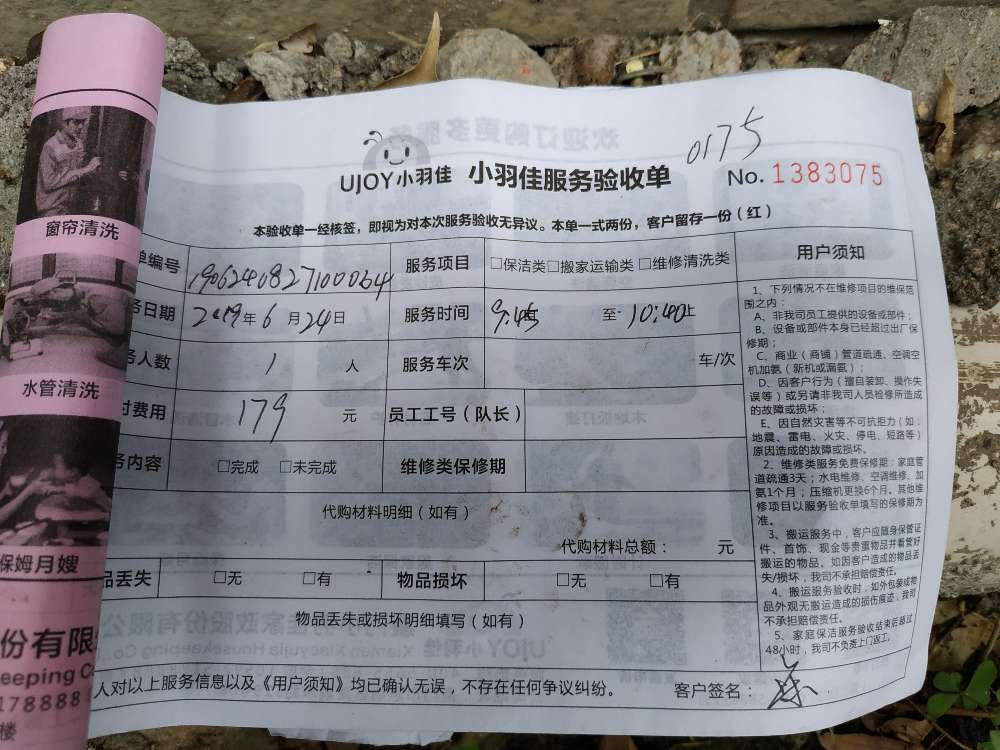 0175
UJOY小羽佳 小羽佳服务验收单 No. 1383075
本验收单一经核签，即视为对本次服务验收无异议。本单一式两份，客户留存一份（红）
单编号 19062408271000064 服务项目 □保洁类□搬家运输类□维修清洗类
务日期 2019年6月24日 服务时间 9:45 至 10:40止
务人数 1 人 服务车次 车/次
付费用 179 元 员工工号（队长）
务内容 □完成 □未完成 维修类保修期
代购材料明细（如有）
代购材料总额： 元
品丢失 □无 □有 物品损坏 □无 □有
物品丢失或损坏明细填写（如有）
人对以上服务信息以及《用户须知》均已确认无误，不存在任何争议纠纷。 客户签名：
用户须知
1、下列情况不在维修项目的维保范
围之内：
A、非我司员工提供的设备或部件；
B、设备或部件本身已经超过出厂保
修期；
C、商业（商铺）管道疏通、空调空
机加氨（新机或漏氨）；
D、因客户行为（擅自装卸、操作失
误等）或另请非我司人员检修所造成
的故障或损坏；
E、因自然灾害等不可抗拒力（如：
地震、雷电、火灾、停电、短路等）
原因造成的故障或损坏。
2、维修类服务免费保修期：家庭管
道疏通3天；水电维修、空调维修、加
氨1个月；压缩机更换6个月。其他维
修项目以服务验收单填写的保修期为
准。
3、搬运服务中，客户应随身保管证
件、首饰、现金等贵重物品并看管好
搬运的物品。如因客户造成的物品丢
失/损坏，我司不承担赔偿责任。
4、搬运服务验收时，如外包装或物
品外观无搬运造成的损伤痕迹，我司
不承担赔偿责任。
5、家庭保洁服务验收结束后超过
48小时，我司不负责上门返工。
窗帘清洗
水管清洗
保姆月嫂
份有限
eeping C
178888
楼